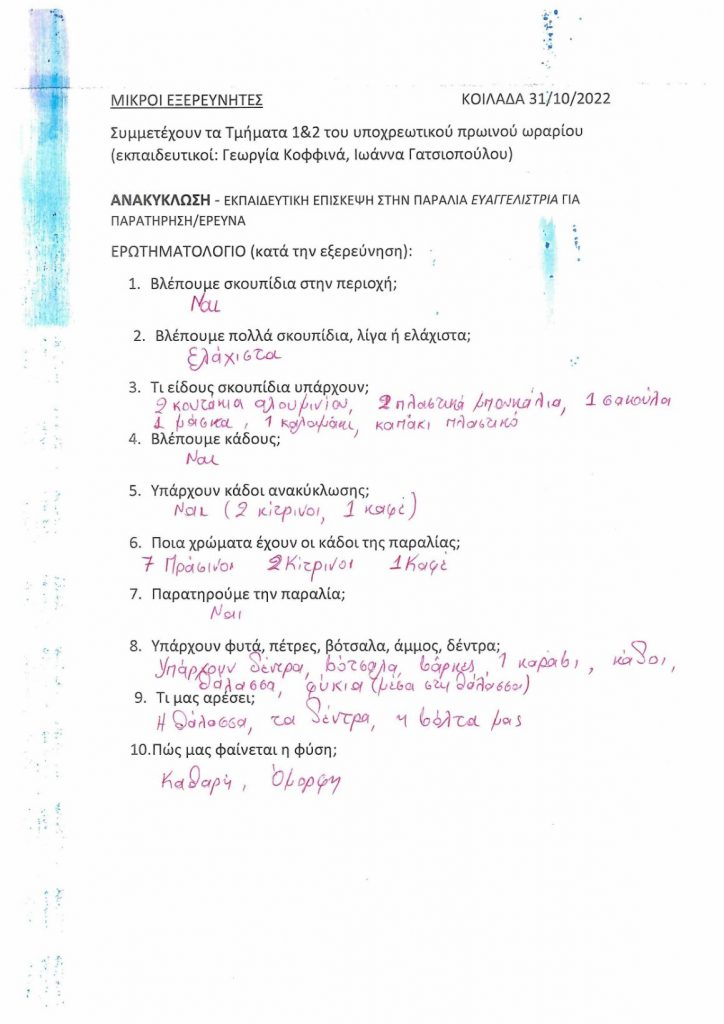 ΜΙΚΡΟΙ ΕΞΕΡΕΥΝΗΤΕΣ ΚΟΙΛΑΔΑ 31/10/2022
Συμμετέχουν τα Τμήματα 1&2 του υποχρεωτικού πρωινού ωραρίου
(εκπαιδευτικοί: Γεωργία Κοφφινά, Ιωάννα Γατσιοπούλου)
ΑΝΑΚΥΚΛΩΣΗ - ΕΚΠΑΙΔΕΥΤΙΚΗ ΕΠΙΣΚΕΨΗ ΣΤΗΝ ΠΑΡΑΛΙΑ ΕΥΑΓΓΕΛΙΣΤΡΙΑ ΓΙΑ
ΠΑΡΑΤΗΡΗΣΗ/ΕΡΕΥΝΑ
ΕΡΩΤΗΜΑΤΟΛΟΓΙΟ (κατά την εξερεύνηση):
1. Βλέπουμε σκουπίδια στην περιοχή;
Ναι
2. Βλέπουμε πολλά σκουπίδια, λίγα ή ελάχιστα;
Ελάχιστα
3. Τι είδους σκουπίδια υπάρχουν;
2 κουτάκια αλουμινίου, 2 πλαστικά μπουκάλια, 1 σακούλα
1 μάσκα, 1 καλαμάκι, καπάκι πλαστικό
4. Βλέπουμε κάδους;
Ναι
5. Υπάρχουν κάδοι ανακύκλωσης;
Ναι (2 κίτρινοι, 1 καφέ)
6. Ποια χρώματα έχουν οι κάδοι της παραλίας;
7 Πράσινοι 2 Κίτρινοι 1 Καφέ
7. Παρατηρούμε την παραλία;
Ναι
8. Υπάρχουν φυτά, πέτρες, βότσαλα, άμμος, δέντρα;
Υπάρχουν δέντρα, βότσαλα, βάρκες, 1 καράβι, κάδοι,
θάλασσα, φύκια (μέσα στη θάλασσα)
9. Τι μας αρέσει;
Η θάλασσα, τα δέντρα, η βόλτα μας
10.Πώς μας φαίνεται η φύση;
Καθαρή, Όμορφη